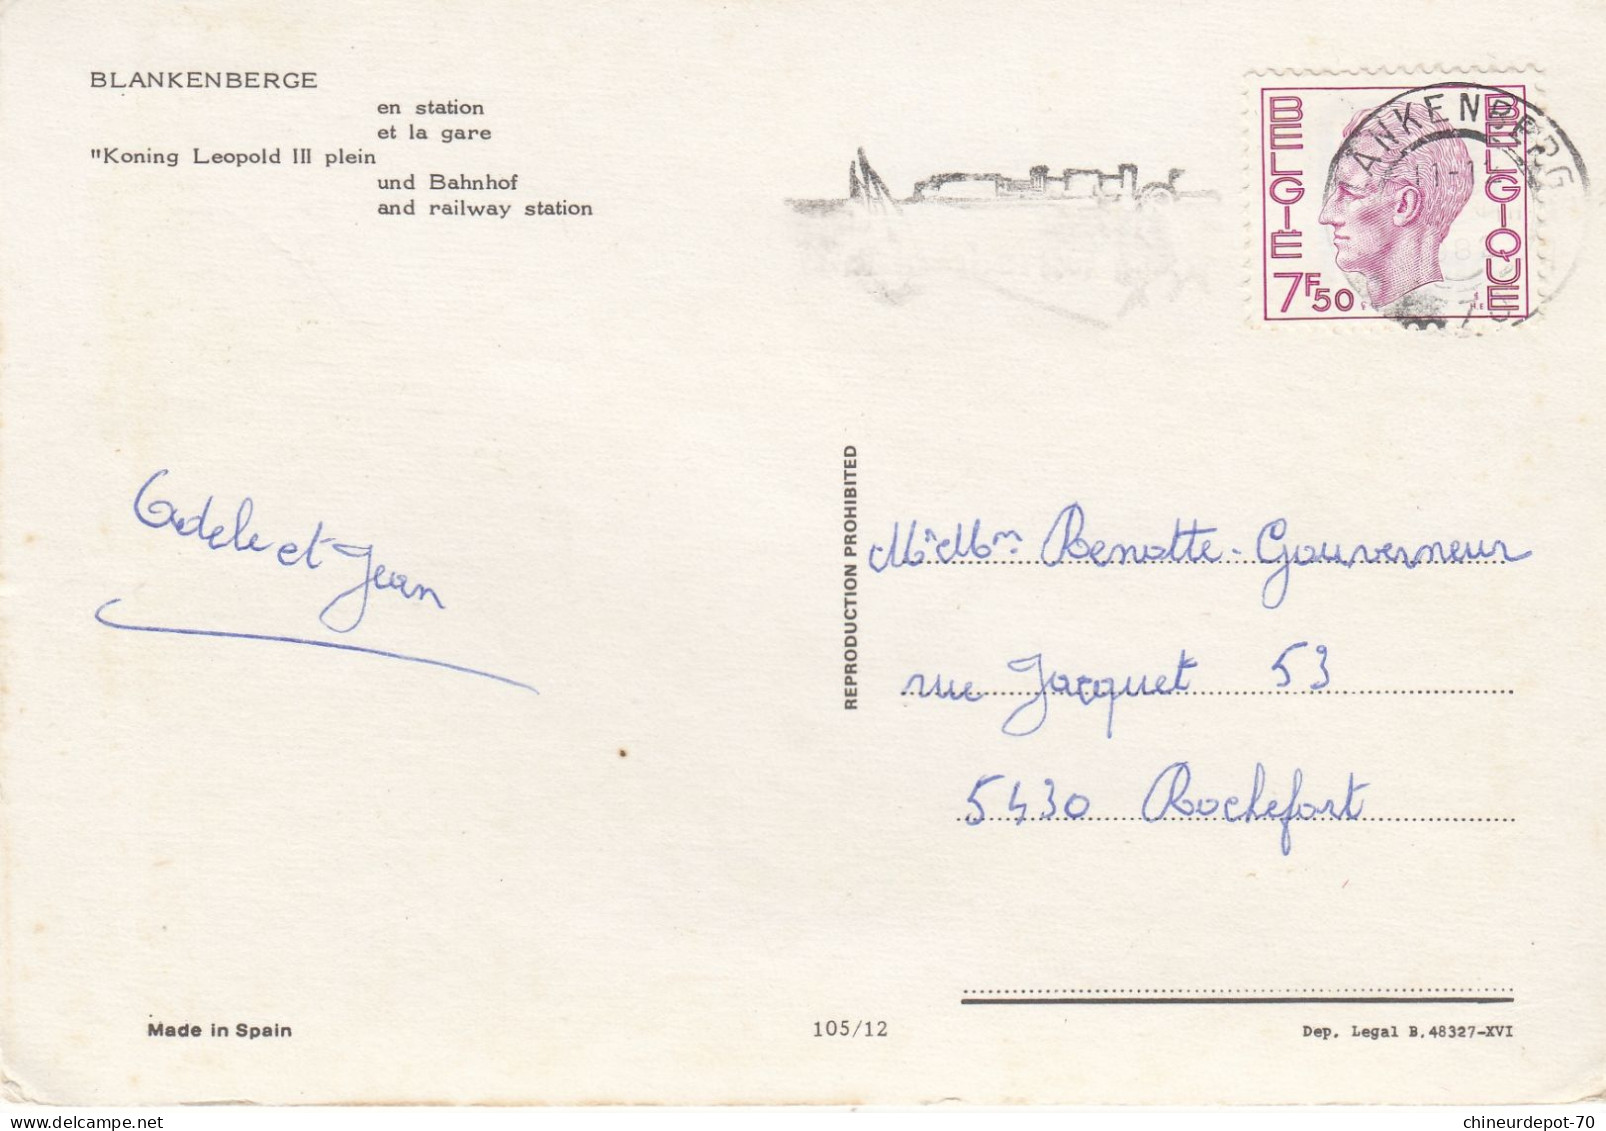 BLANKENBERGE
en station
et la gare
"Koning Leopold III plein
und Bahnhof
and railway station
BELGIË
BELGIQUE
7F50
ANKENBERG
Adele et Jean
REPRODUCTION PROHIBITED
Mr Mm Benotte-Gouverneur
rue Jacquet 53
5430 Rochefort
Made in Spain
105/12
Dep. Legal B. 48327-XVI
chineurdepot-70